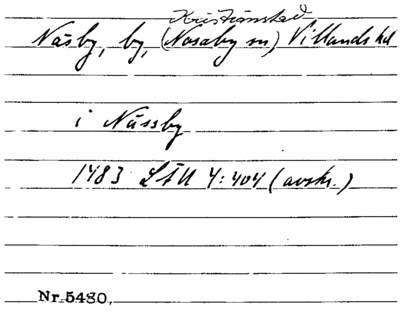 Kristianstad
Näsby, by, (Nosaby sn) Villands hd
i Nässby
1483 LÄU 4:404 (avskr.)
Nr. 5480.